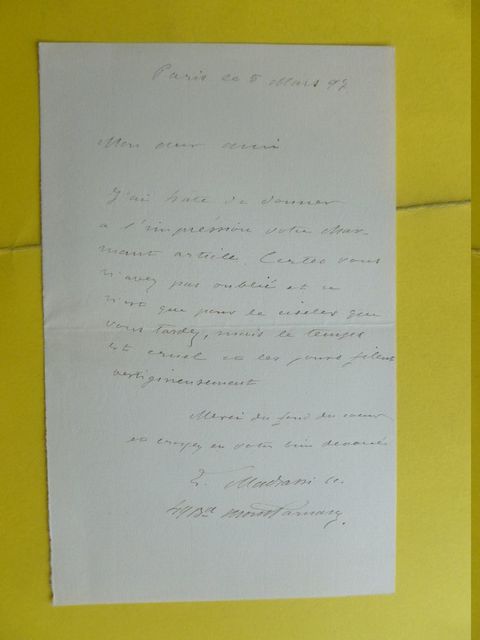 Paris le 5 Mars 97
Mon cher ami
J'ai hâte de donner
a l'impression votre char-
mant article. Certes vous
n'avez pas oublié et ce
n'est que pour le ciseler que
vous tardez, mais le temps
est cruel et les jours filent
vertigineusement
Merci du fond du coeur
et croyez en votre bien dévoué
L. Madrassi
49 Bd Montparnasse